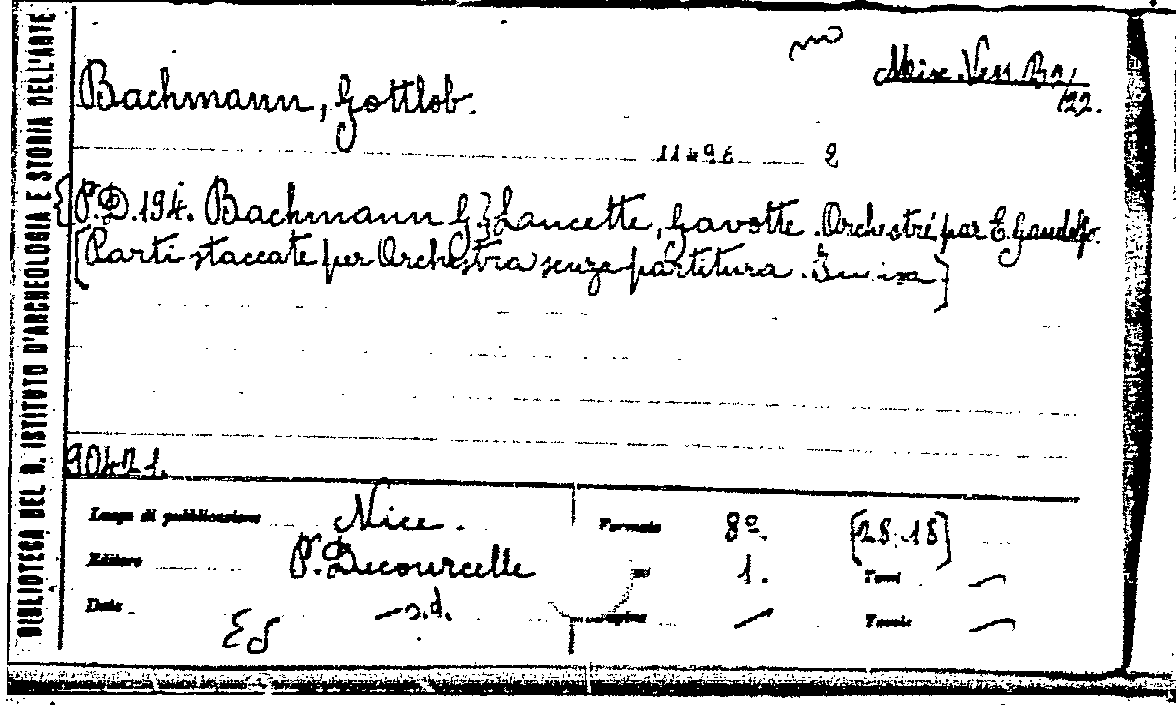 BIBLIOTECA DEL R. ISTITUTO D'ARCHEOLOGIA E STORIA DELL'ARTE
Misc. Vess. B2/
122.
Bachmann, Gottlob.
2
{P.D.194. Bachmann G} Lancette, Gavotte. Orchestré par E. Gaudef.
[Parti staccate per Orchestra senza partitura.
90421.
Luogo di pubblicazione Nice. Formato 8º. [28.18]
Editore P. Decourcelle 1. Tomi —
Data — s.d. — Tavole —